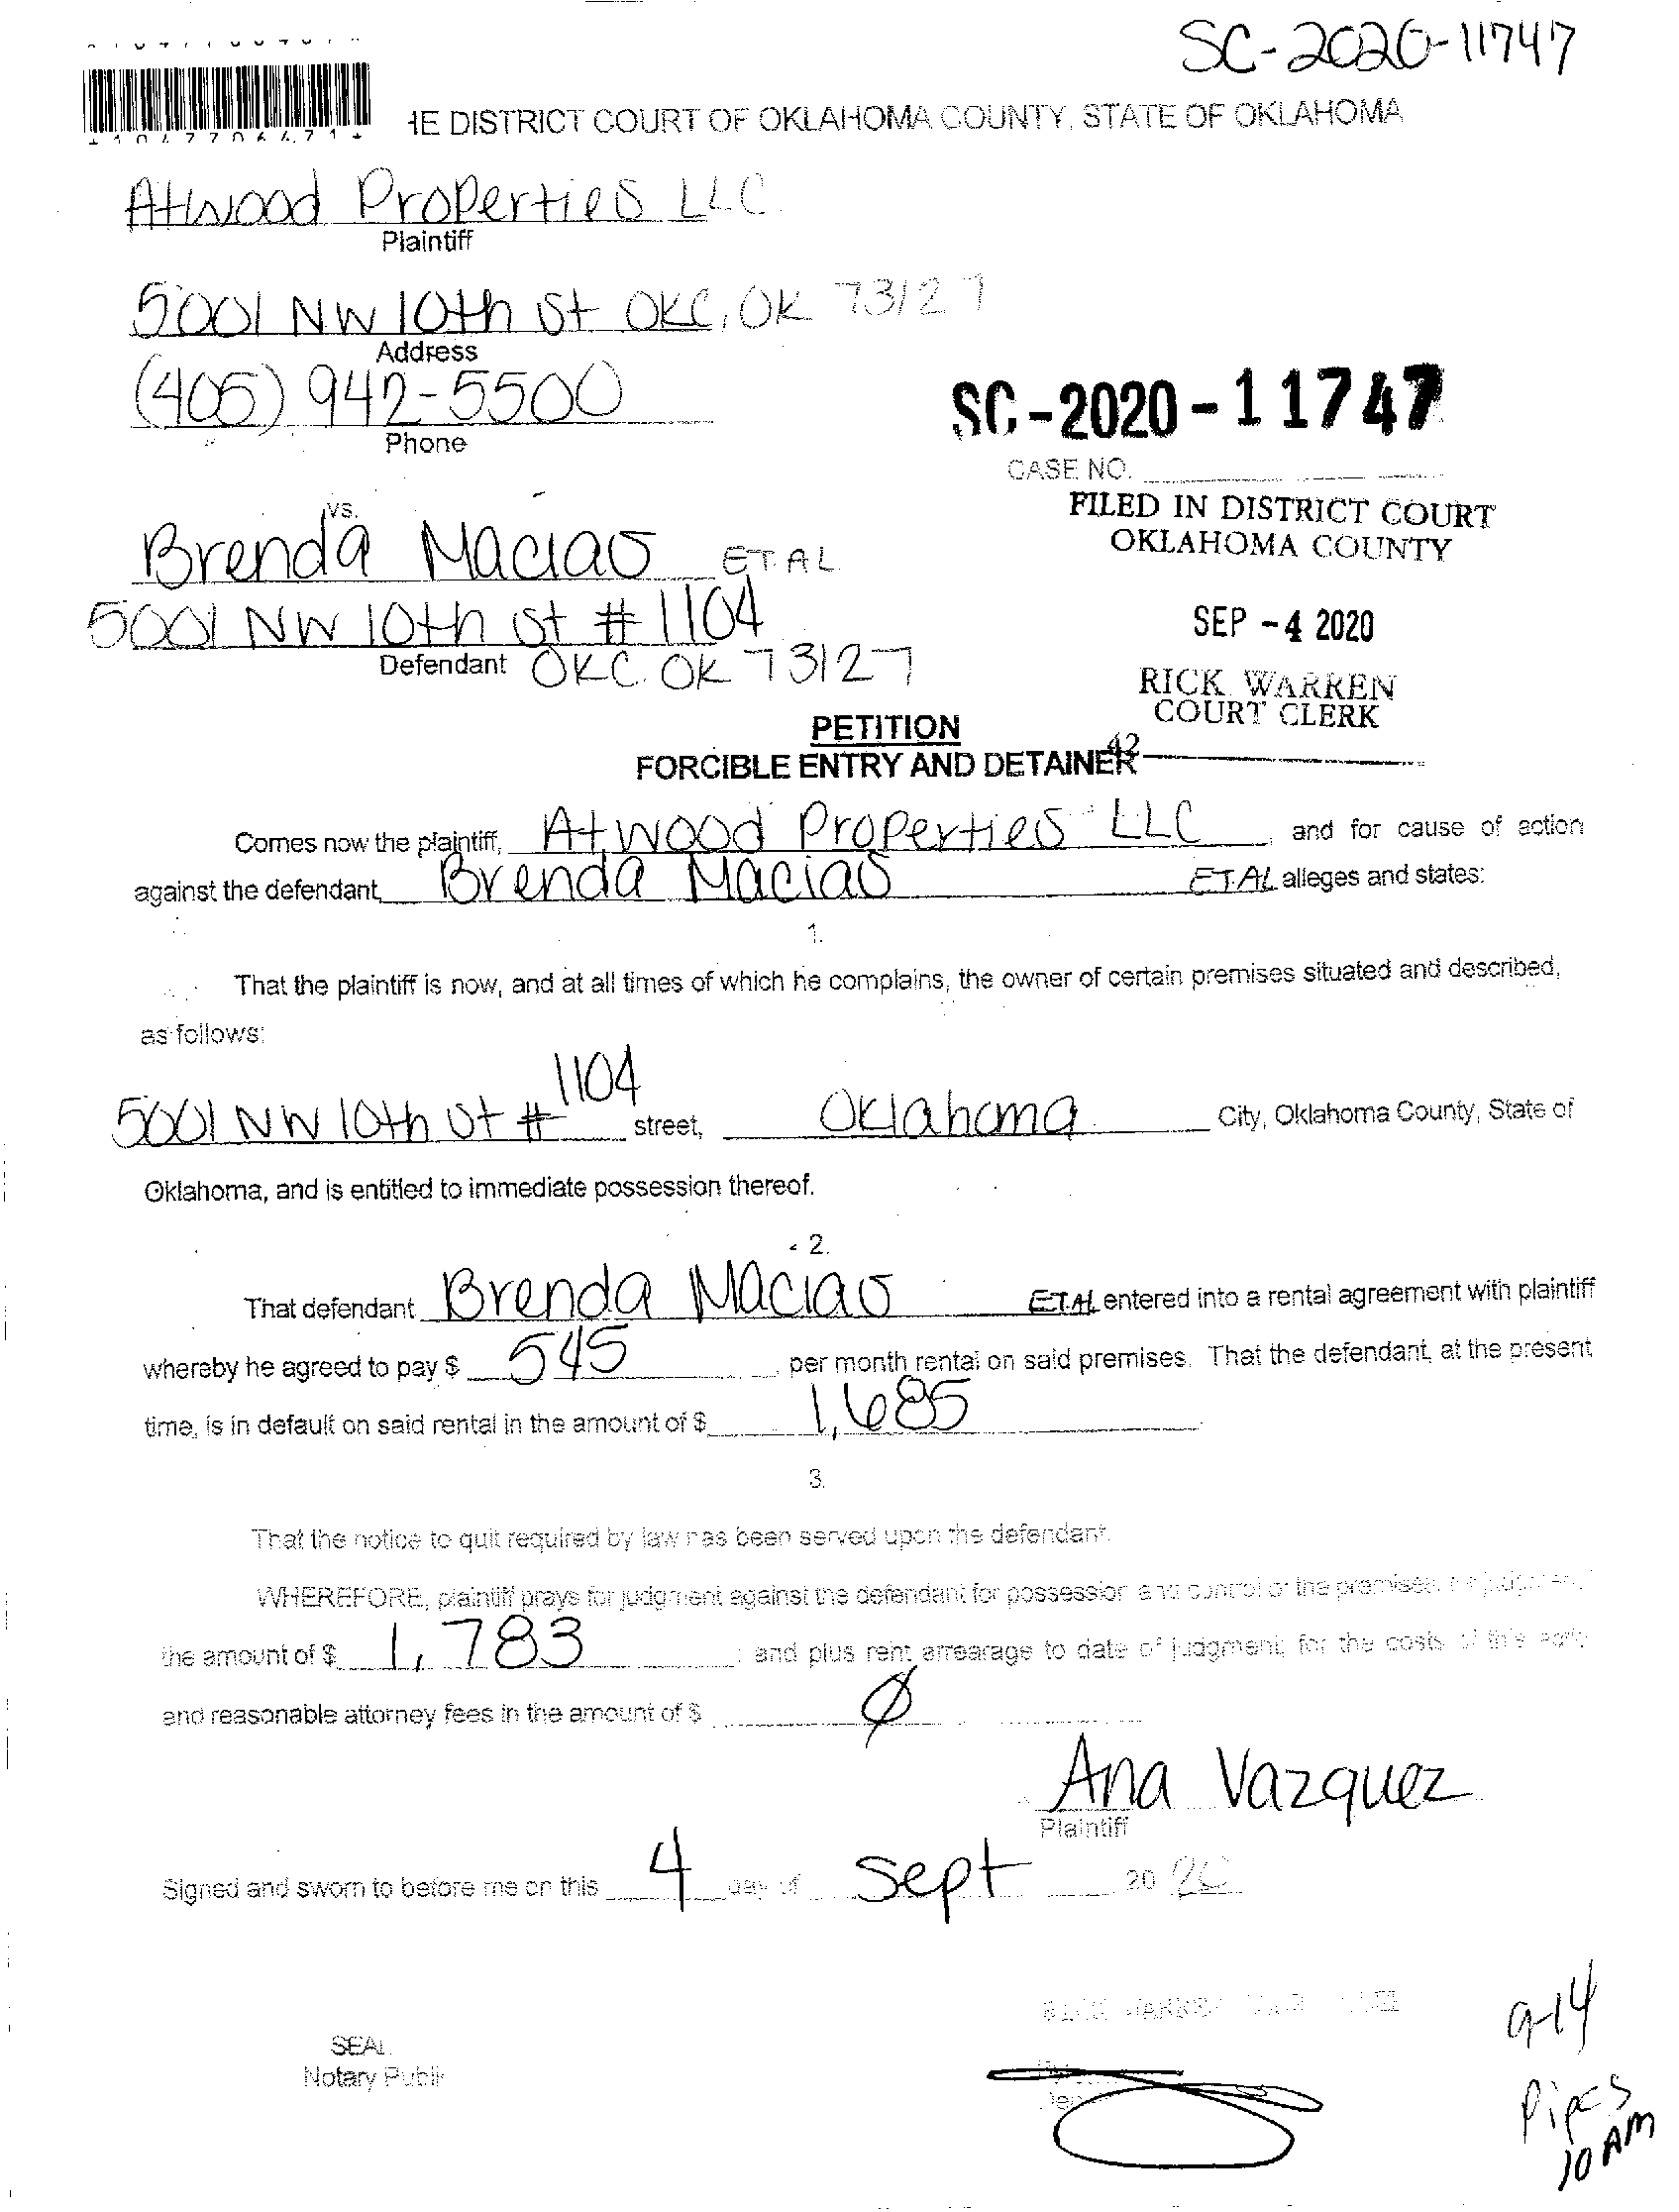 SC-2020-11747
HE DISTRICT COURT OF OKLAHOMA COUNTY, STATE OF OKLAHOMA
Atwood Properties LLC
Plaintiff
5001 NW 10th St OKC, OK 73127
Address
(405) 942-5500
Phone
SC-2020-11747
CASE NO.
FILED IN DISTRICT COURT
OKLAHOMA COUNTY
vs.
Brenda Macias ET AL
5001 NW 10th St # 1104
Defendant OKC. OK 73127
SEP -4 2020
RICK WARREN
COURT CLERK
PETITION
42
FORCIBLE ENTRY AND DETAINER
Comes now the plaintiff, Atwood Properties LLC and for cause of action
against the defendant, Brenda Macias ET.AL alleges and states:
1.
That the plaintiff is now, and at all times of which he complains, the owner of certain premises situated and described,
as follows:
5001 NW 10th St # 1104 street, Oklahoma City, Oklahoma County, State of
Oklahoma, and is entitled to immediate possession thereof.
2.
That defendant Brenda Macias ET.AL entered into a rental agreement with plaintiff
whereby he agreed to pay $ 545 per month rental on said premises. That the defendant, at the present
time, is in default on said rental in the amount of $ 1,685
3.
That the notice to quit required by law has been served upon the defendant.
WHEREFORE, plaintiff prays for judgment against the defendant for possession and control of the premises,
the amount of $ 1,783 ; and plus rent arrearage to date of judgment; for the costs of this
and reasonable attorney fees in the amount of $ Ø
Ana Vazquez
Plaintiff
Signed and sworn to before me on this 4 day of Sept 20 20
SEAL
Notary Public
9-14
Pipes
10 AM